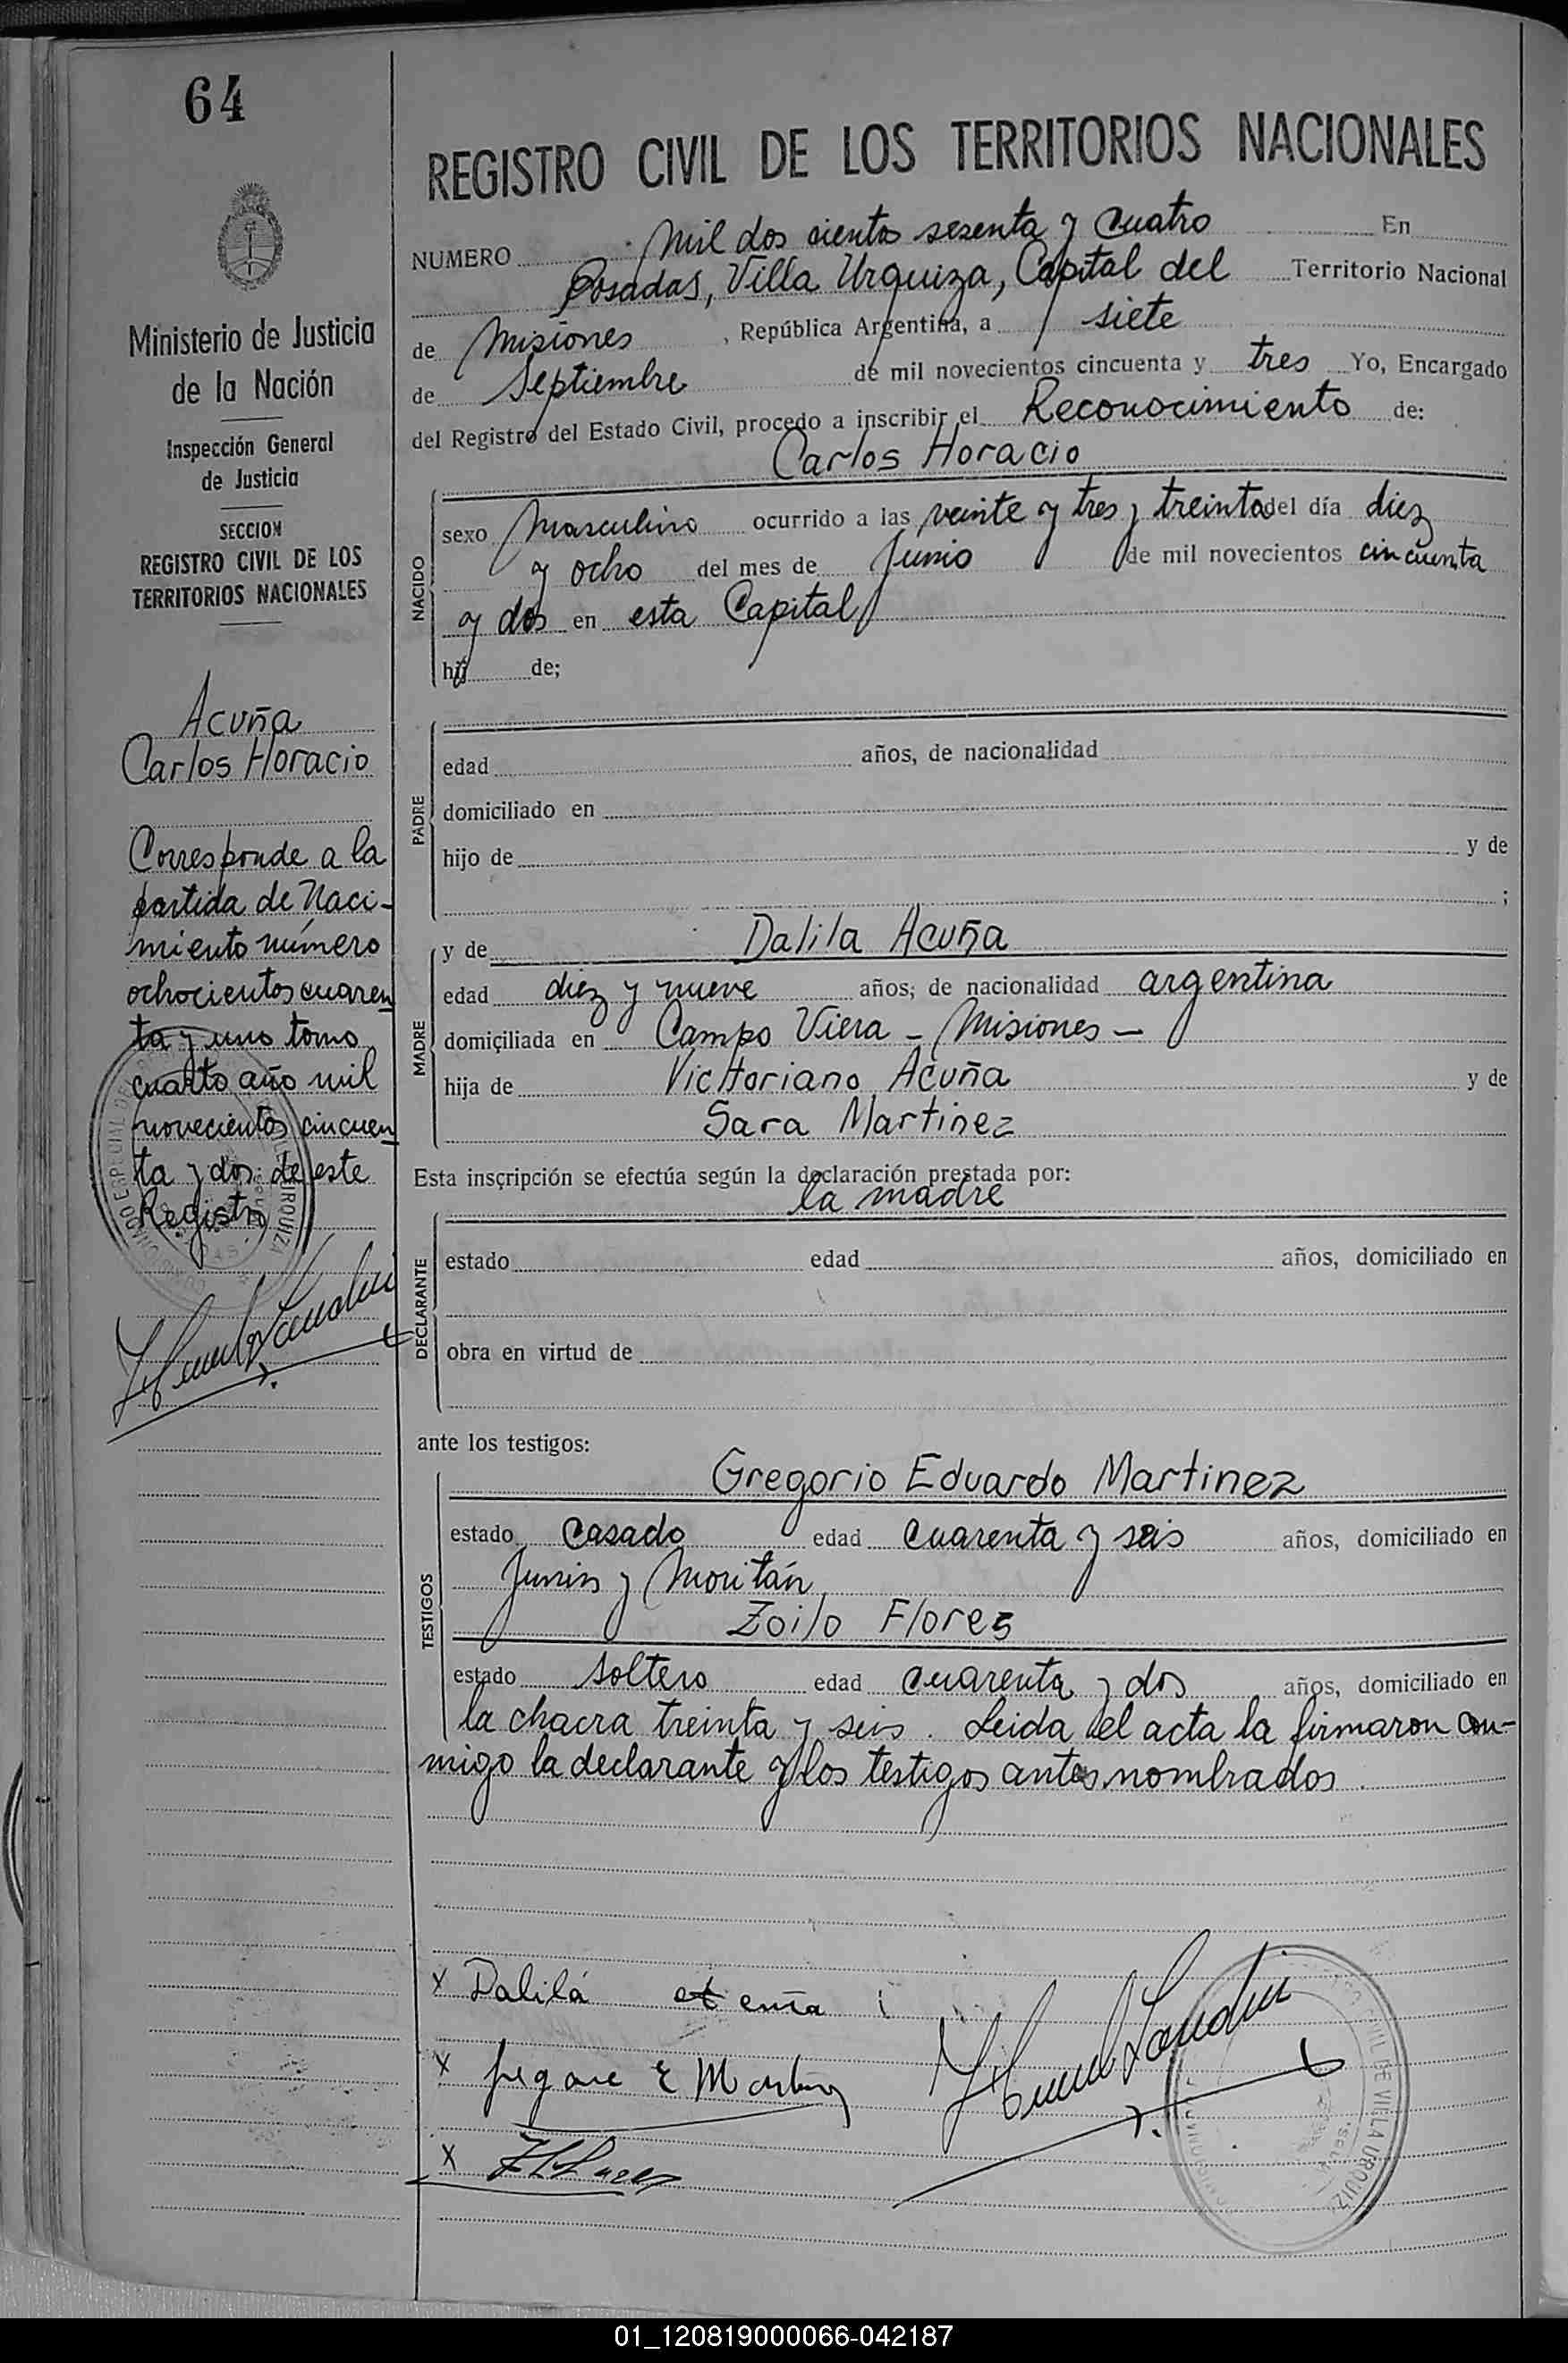 64
REGISTRO CIVIL DE LOS TERRITORIOS NACIONALES
NUMERO Mil dos cientos sesenta y cuatro En
Posadas, Villa Urquiza, Capital del Territorio Nacional
de Misiones, República Argentina, a siete
de Septiembre de mil novecientos cincuenta y tres Yo, Encargado
del Registro del Estado Civil, procedo a inscribir el Reconocimiento de:
Carlos Horacio
NACIDO
sexo masculino ocurrido a las veinte y tres y treinta del día diez
y ocho del mes de Junio de mil novecientos cincuenta
y dos en esta Capital
hij de;
PADRE
edad años, de nacionalidad
domiciliado en
hijo de y de
;
MADRE
y de Dalila Acuña
edad diez y nueve años; de nacionalidad argentina
domiciliada en Campo Viera - Misiones -
hija de Victtoriano Acuña y de
Sara Martinez
Esta inscripción se efectúa según la declaración prestada por:
la madre
DECLARANTE
estado edad años, domiciliado en
obra en virtud de
ante los testigos:
TESTIGOS
Gregorio Eduardo Martinez
estado Casado edad cuarenta y seis años, domiciliado en
Junin y Moritán
Zoilo Flores
estado soltero edad cuarenta y dos años, domiciliado en
la chacra treinta y seis. Leida el acta la firmaron con-
migo la declarante y los testigos antes nombrados
x Dalilá
x
x
Ministerio de Justicia
de la Nación
Inspección General
de Justicia
SECCION
REGISTRO CIVIL DE LOS
TERRITORIOS NACIONALES
Acuña
Carlos Horacio
Corresponde a la
partida de Naci-
miento número
ochocientos cuaren
ta y uno tomo
cuarto año mil
novecientos cincuen
ta y dos de este
Registro
VILLA URQUIZA
01_120819000066-042187